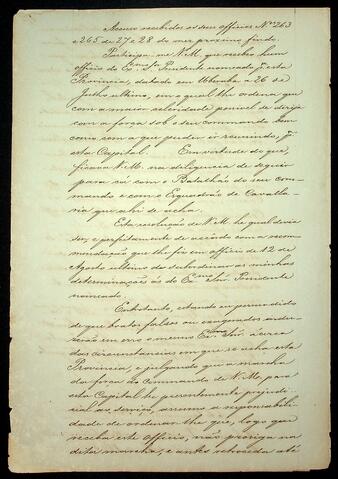 Accuso recebidos os seus officios Nos 263
e 265 de 27 e 28 do mez proximo findo.
Participa-me V. M. que recebeo hum
officio do Exmo Sr. Presidente nomeado p. esta
Provincia, datado em Uberaba a 26 de
Julho ultimo, em o qual lhe ordena que
com a maior celeridade possivel se dirija
com a força sob o seu commando bem
como com a que puder ir reunindo, p.
esta Capital. Em virtude do que,
ficava V. M. na diligencia de seguir
para cá com o Batalhão do seu com-
mando e com o Esquadrão de Cavalla-
ria que ahi se acha.
Esta resolução de V. M. he qual devia
ser, e perfeitamente de accordo com a recom-
mendação que lhe fiz em officio de 12 de
Agosto ultimo de subordinar as minhas
determinações ás do Exmo Snr. Presidente
nomeado.
Entretanto, estando eu persuadido
de que boatos falsos ou exagerados indu-
zirão em erro o mesmo Exmo Snr. ácerca
das circunstancias em que se acha esta
Provincia, e julgando que a marcha
da força do Commando de V. M. para
esta Capital he presentemente prejudi-
cial ao serviço, assumo a responsabili-
dade de ordenar-lhe que, logo que
receba este officio, não prosiga na
dita marcha, e antes retroceda até